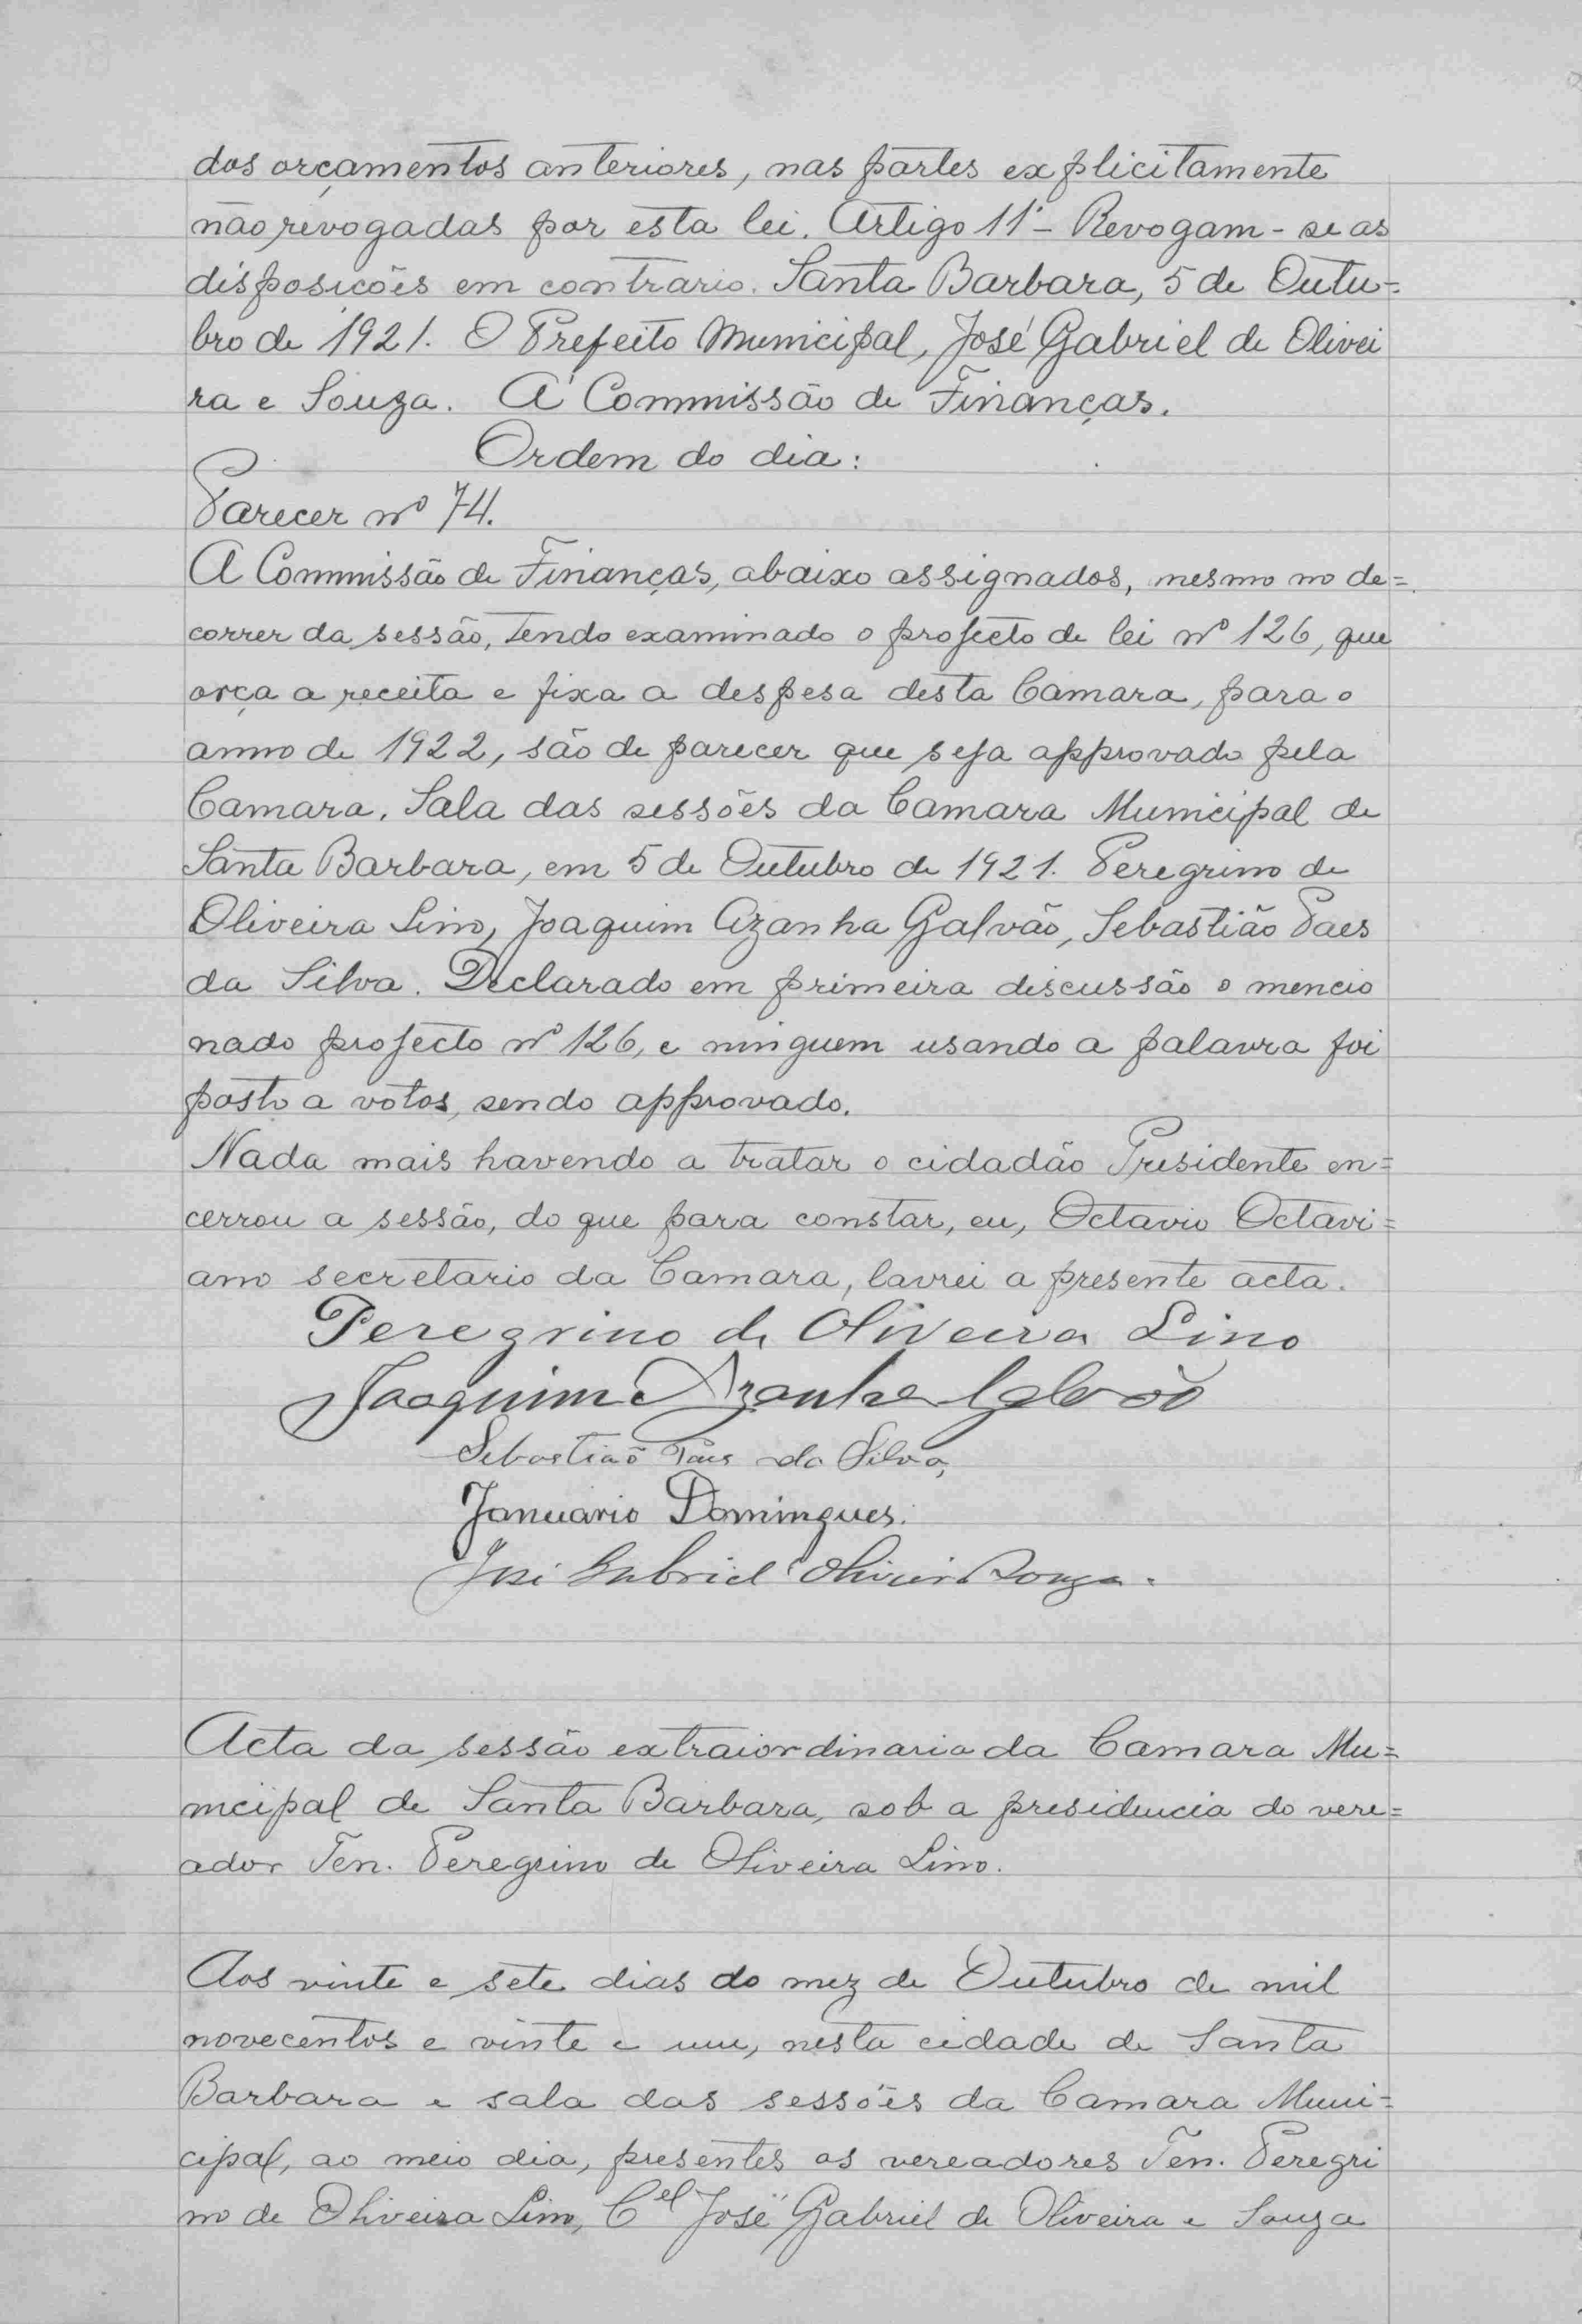 dos orçamentos anteriores, nas partes explicitamente
não revogadas por esta lei. Artigo 11º - Revogam-se as
disposicões em contrario. Santa Barbara, 5 de Outu-
bro de 1921. O Prefeito Municipal, José Gabriel de Olivei
ra e Souza. A' Commissão de Finanças.
Ordem do dia:
Parecer nº 74.
A Commissão de Finanças, abaixo assignados, mesmo no de=
correr da sessão, tendo examinado o projecto de lei nº 126, que
orça a receita e fixa a despesa desta Camara, para o
anno de 1922, são de parecer que seja approvado pela
Camara. Sala das sessões da Camara Municipal de
Santa Barbara, em 5 de Outubro de 1921. Peregrino de
Oliveira Lino, Joaquim Azanha Galvão, Sebastião Paes
da Silva. Declarado em primeira discussão o mencio
nado projecto nº 126, e ninguem usando a palavra foi
posto a votos, sendo approvado.
Nada mais havendo a tratar o cidadão Presidente en=
cerrou a sessão, do que para constar, eu, Octavio Octavi=
ano secretario da Camara, lavrei a presente acta.
Peregrino de Oliveira Lino
Joaquim Azanha Galvão
Sebastião Paes da Silva,
Januario Domingues.
José Gabriel Oliveira Souza.
Acta da sessão extraiordinaria da Camara Mu=
nicipal de Santa Barbara, sob a presidencia do vere=
ador Ten. Peregrino de Oliveira Lino.
Aos vinte e sete dias do mez de Outubro de mil
novecentos e vinte e um, nesta cidade de Santa
Barbara e sala das sessões da Camara Muni=
cipal, ao meio dia, presentes os vereadores Ten. Peregri
no de Oliveira Lino, Cel José Gabriel de Oliveira e Souza